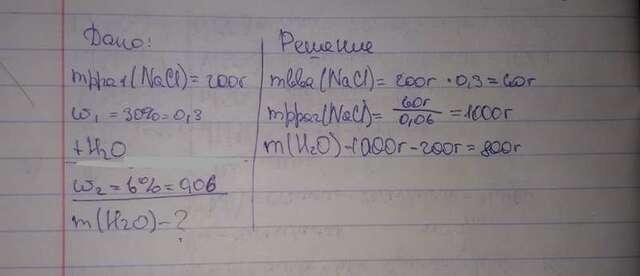 Дано:
mppa1(NaCl)=200г
ω1=30%=0,3
+H2O
ω2=6%=0,06
m(H2O)-?
Решение
mbba(NaCl)=200г·0,3=60г
mppa2(NaCl)=60г/0,06=1000г
m(H2O)-1000г-200г=800г